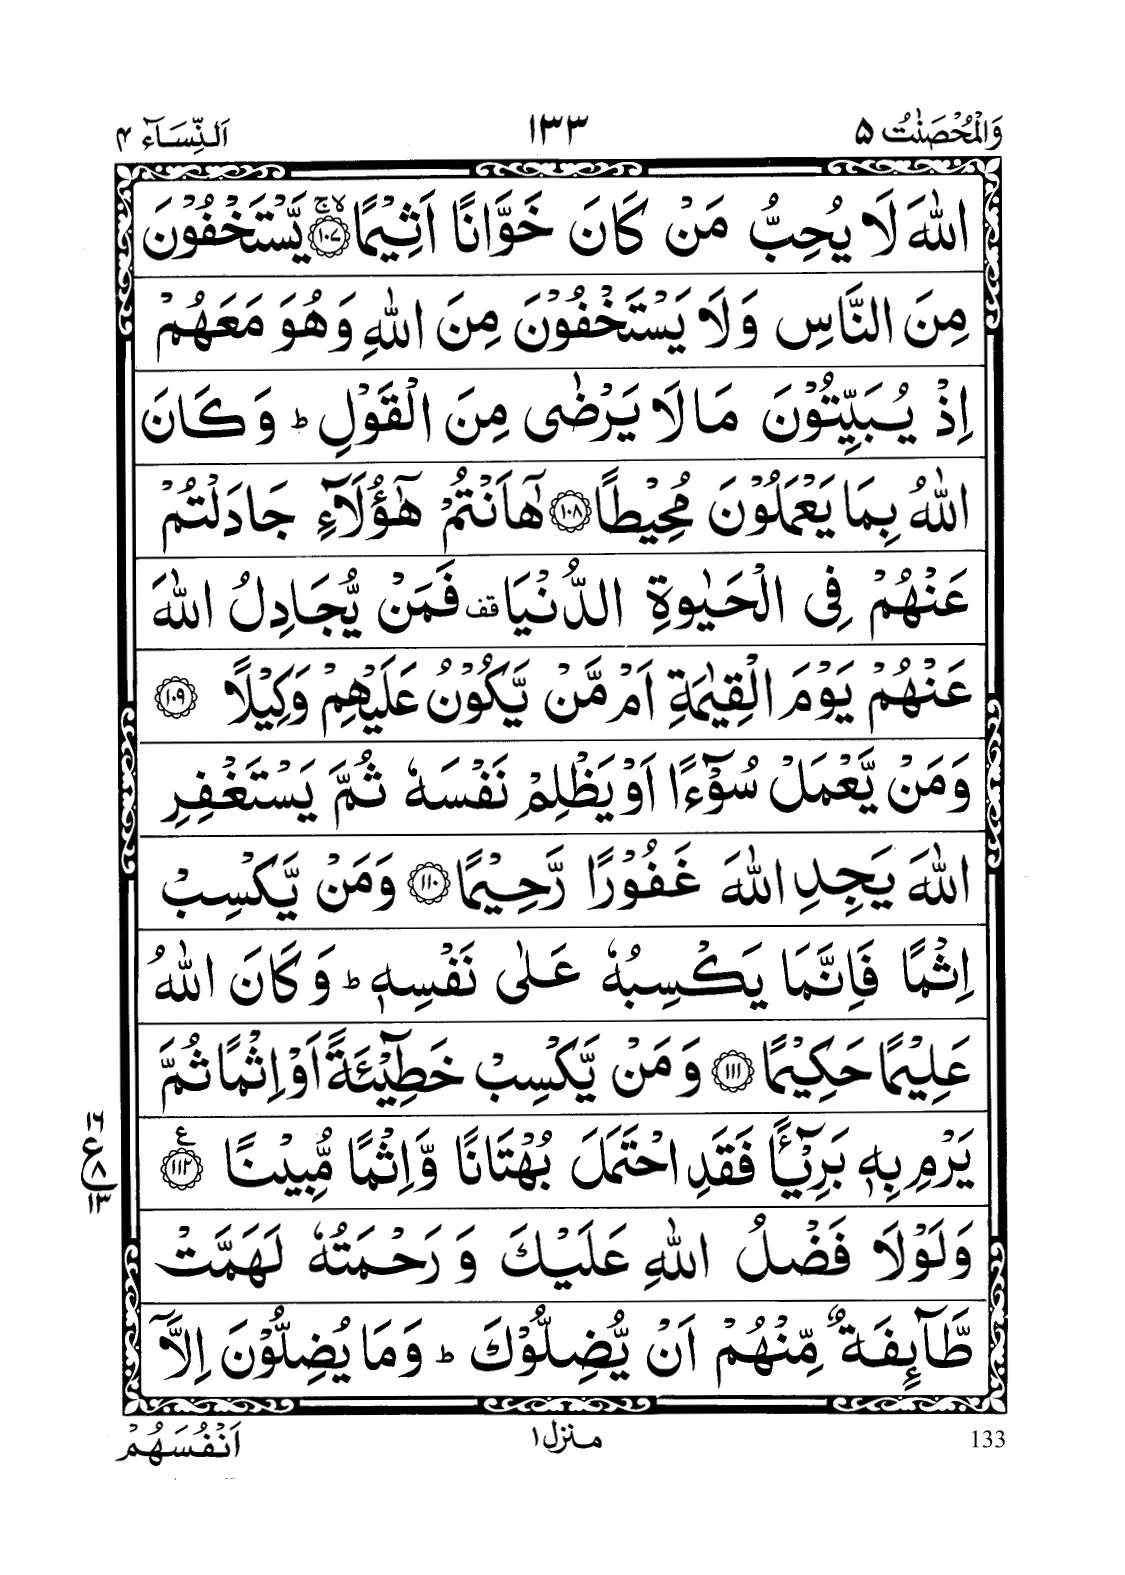 وَالْمُحْصَنٰتُ ۵ ۱۳۳ اَلنِّسَآء ۴
اللّٰهَ لَا يُحِبُّ مَنْ كَانَ خَوَّانًا اَثِيْمًا ۙۚ ﴿۱۰۷﴾ يَّسْتَخْفُوْنَ
مِنَ النَّاسِ وَلَا يَسْتَخْفُوْنَ مِنَ اللّٰهِ وَهُوَ مَعَهُمْ
اِذْ يُبَيِّتُوْنَ مَا لَا يَرْضٰى مِنَ الْقَوْلِ ؕ وَكَانَ
اللّٰهُ بِمَا يَعْمَلُوْنَ مُحِيْطًا ﴿۱۰۸﴾ هٰۤاَنْتُمْ هٰۤؤُلَآءِ جَادَلْتُمْ
عَنْهُمْ فِى الْحَيٰوةِ الدُّنْيَا قف فَمَنْ يُّجَادِلُ اللّٰهَ
عَنْهُمْ يَوْمَ الْقِيٰمَةِ اَمْ مَّنْ يَّكُوْنُ عَلَيْهِمْ وَكِيْلًا ﴿۱۰۹﴾
وَمَنْ يَّعْمَلْ سُوْٓءًا اَوْ يَظْلِمْ نَفْسَهٗ ثُمَّ يَسْتَغْفِرِ
اللّٰهَ يَجِدِ اللّٰهَ غَفُوْرًا رَّحِيْمًا ﴿۱۱۰﴾ وَمَنْ يَّكْسِبْ
اِثْمًا فَاِنَّمَا يَكْسِبُهٗ عَلٰى نَفْسِهٖ ؕ وَكَانَ اللّٰهُ
عَلِيْمًا حَكِيْمًا ﴿۱۱۱﴾ وَمَنْ يَّكْسِبْ خَطِيْٓئَةً اَوْ اِثْمًا ثُمَّ
يَرْمِ بِهٖ بَرِيْٓـًٔا فَقَدِ احْتَمَلَ بُهْتَانًا وَّاِثْمًا مُّبِيْنًا ع ﴿۱۱۲﴾
۱۶
ع ۸
۱۳
وَلَوْلَا فَضْلُ اللّٰهِ عَلَيْكَ وَرَحْمَتُهٗ لَهَمَّتْ
طَّآئِفَةٌ مِّنْهُمْ اَنْ يُّضِلُّوْكَ ؕ وَمَا يُضِلُّوْنَ اِلَّآ
133 منزل ۱ اَنْفُسَهُمْ